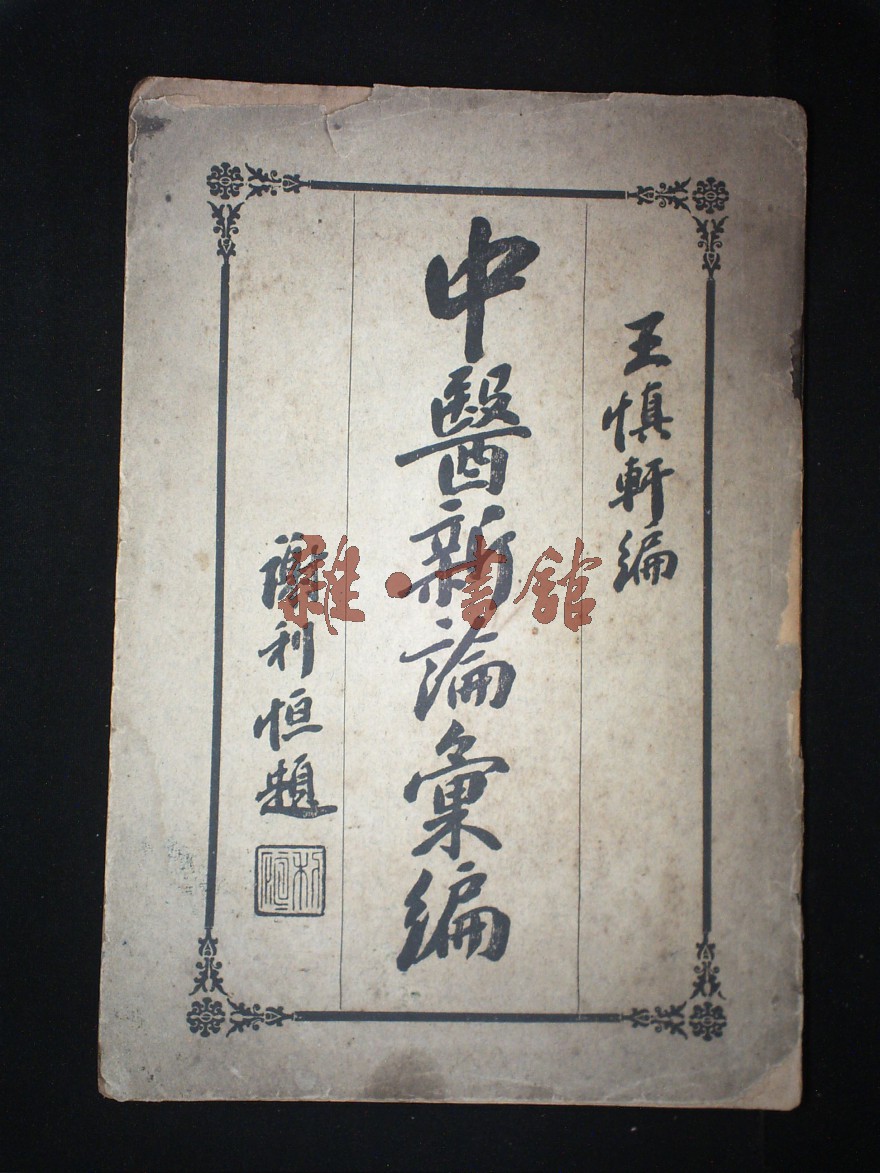 王慎軒編
中醫新論彙編
謝利恒題
雜·書館